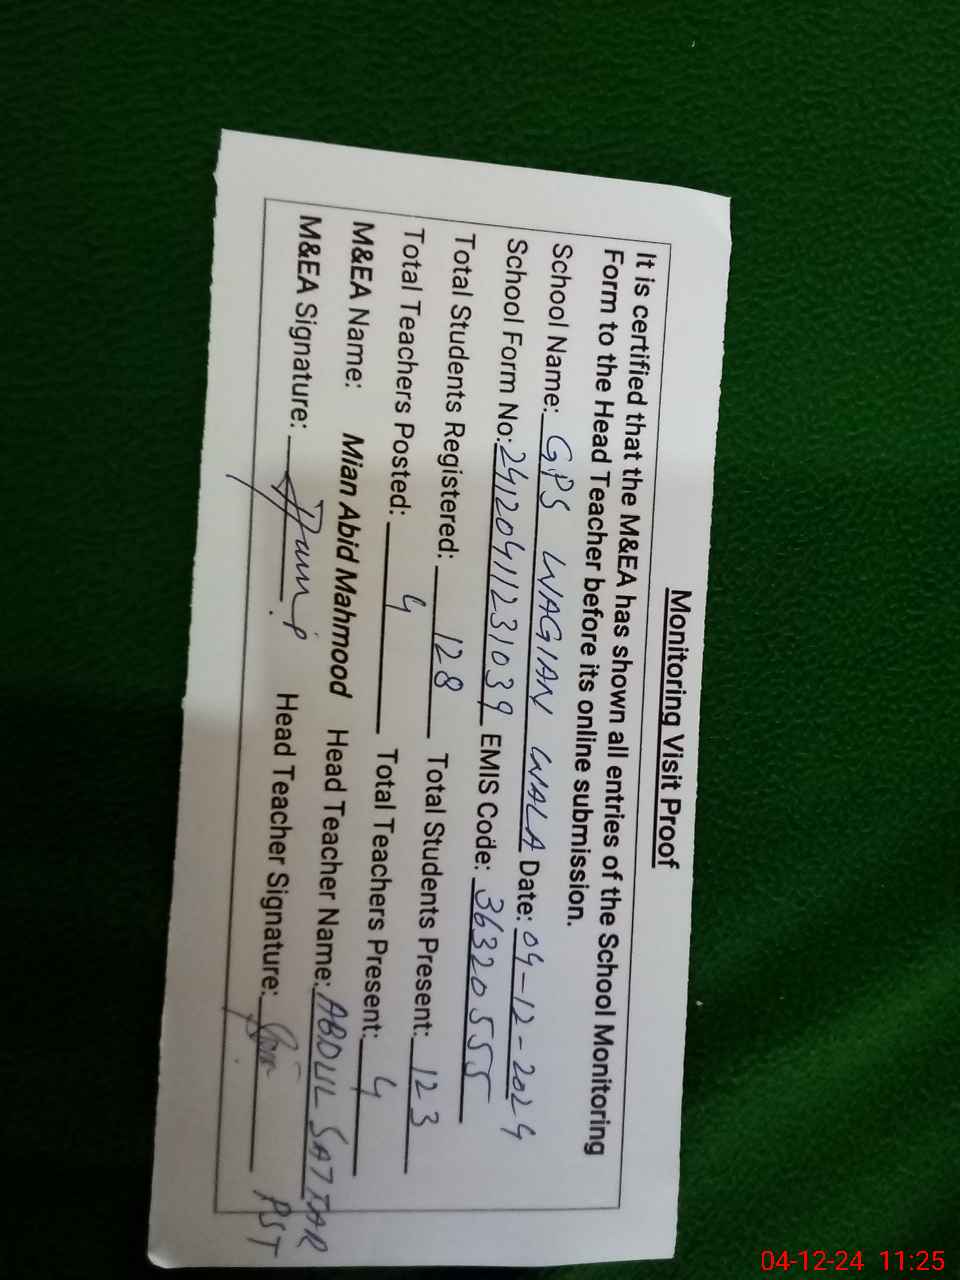 Monitoring Visit Proof
It is certified that the M&EA has shown all entries of the School Monitoring
Form to the Head Teacher before its online submission.
School Name: GPS WAGIAN WALA Date: 04-12-2024
School Form No: 24120411231039 EMIS Code: 36320555
Total Students Registered: 128 Total Students Present: 123
Total Teachers Posted: 4 Total Teachers Present: 4
M&EA Name: Mian Abid Mahmood Head Teacher Name: ABDUL SATTAR
M&EA Signature: Head Teacher Signature: PST
04-12-24 11:25